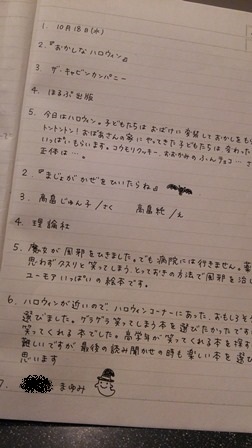 1. 10月18日(水)
2.『おかしなハロウィン』
3. ザ・キャビンカンパニー
4. ほるぷ出版
5. 今日はハロウィン。子どもたちはおばけに仮装しておかしをも
トントントン!おばあさんの家にやってきた子どもたちは、変わった
いっぱいもらいます。コウモリクッキー、おおかみのふんチョコ…
正体は…。
2.『まじょがかぜをひいたらね』
3. 高畠じゅん子/さく 高畠純/え
4. 理論社
5. 魔女が風邪をひきました。でも病院には行きません。
思わずクスリと笑ってしまうとっておきの方法で風邪を治し
ユーモアいっぱいの絵本です。
6. ハロウィンが近いので、ハロウィンコーナーにあった、おもしろそう
選びました。ゲラゲラ笑ってしまう本を選びたかったです
笑ってくれる本でした。高学年が笑ってくれる本を探す
難しいですが最後の読み聞かせの時も楽しい本を選び
思います
7. まゆみ